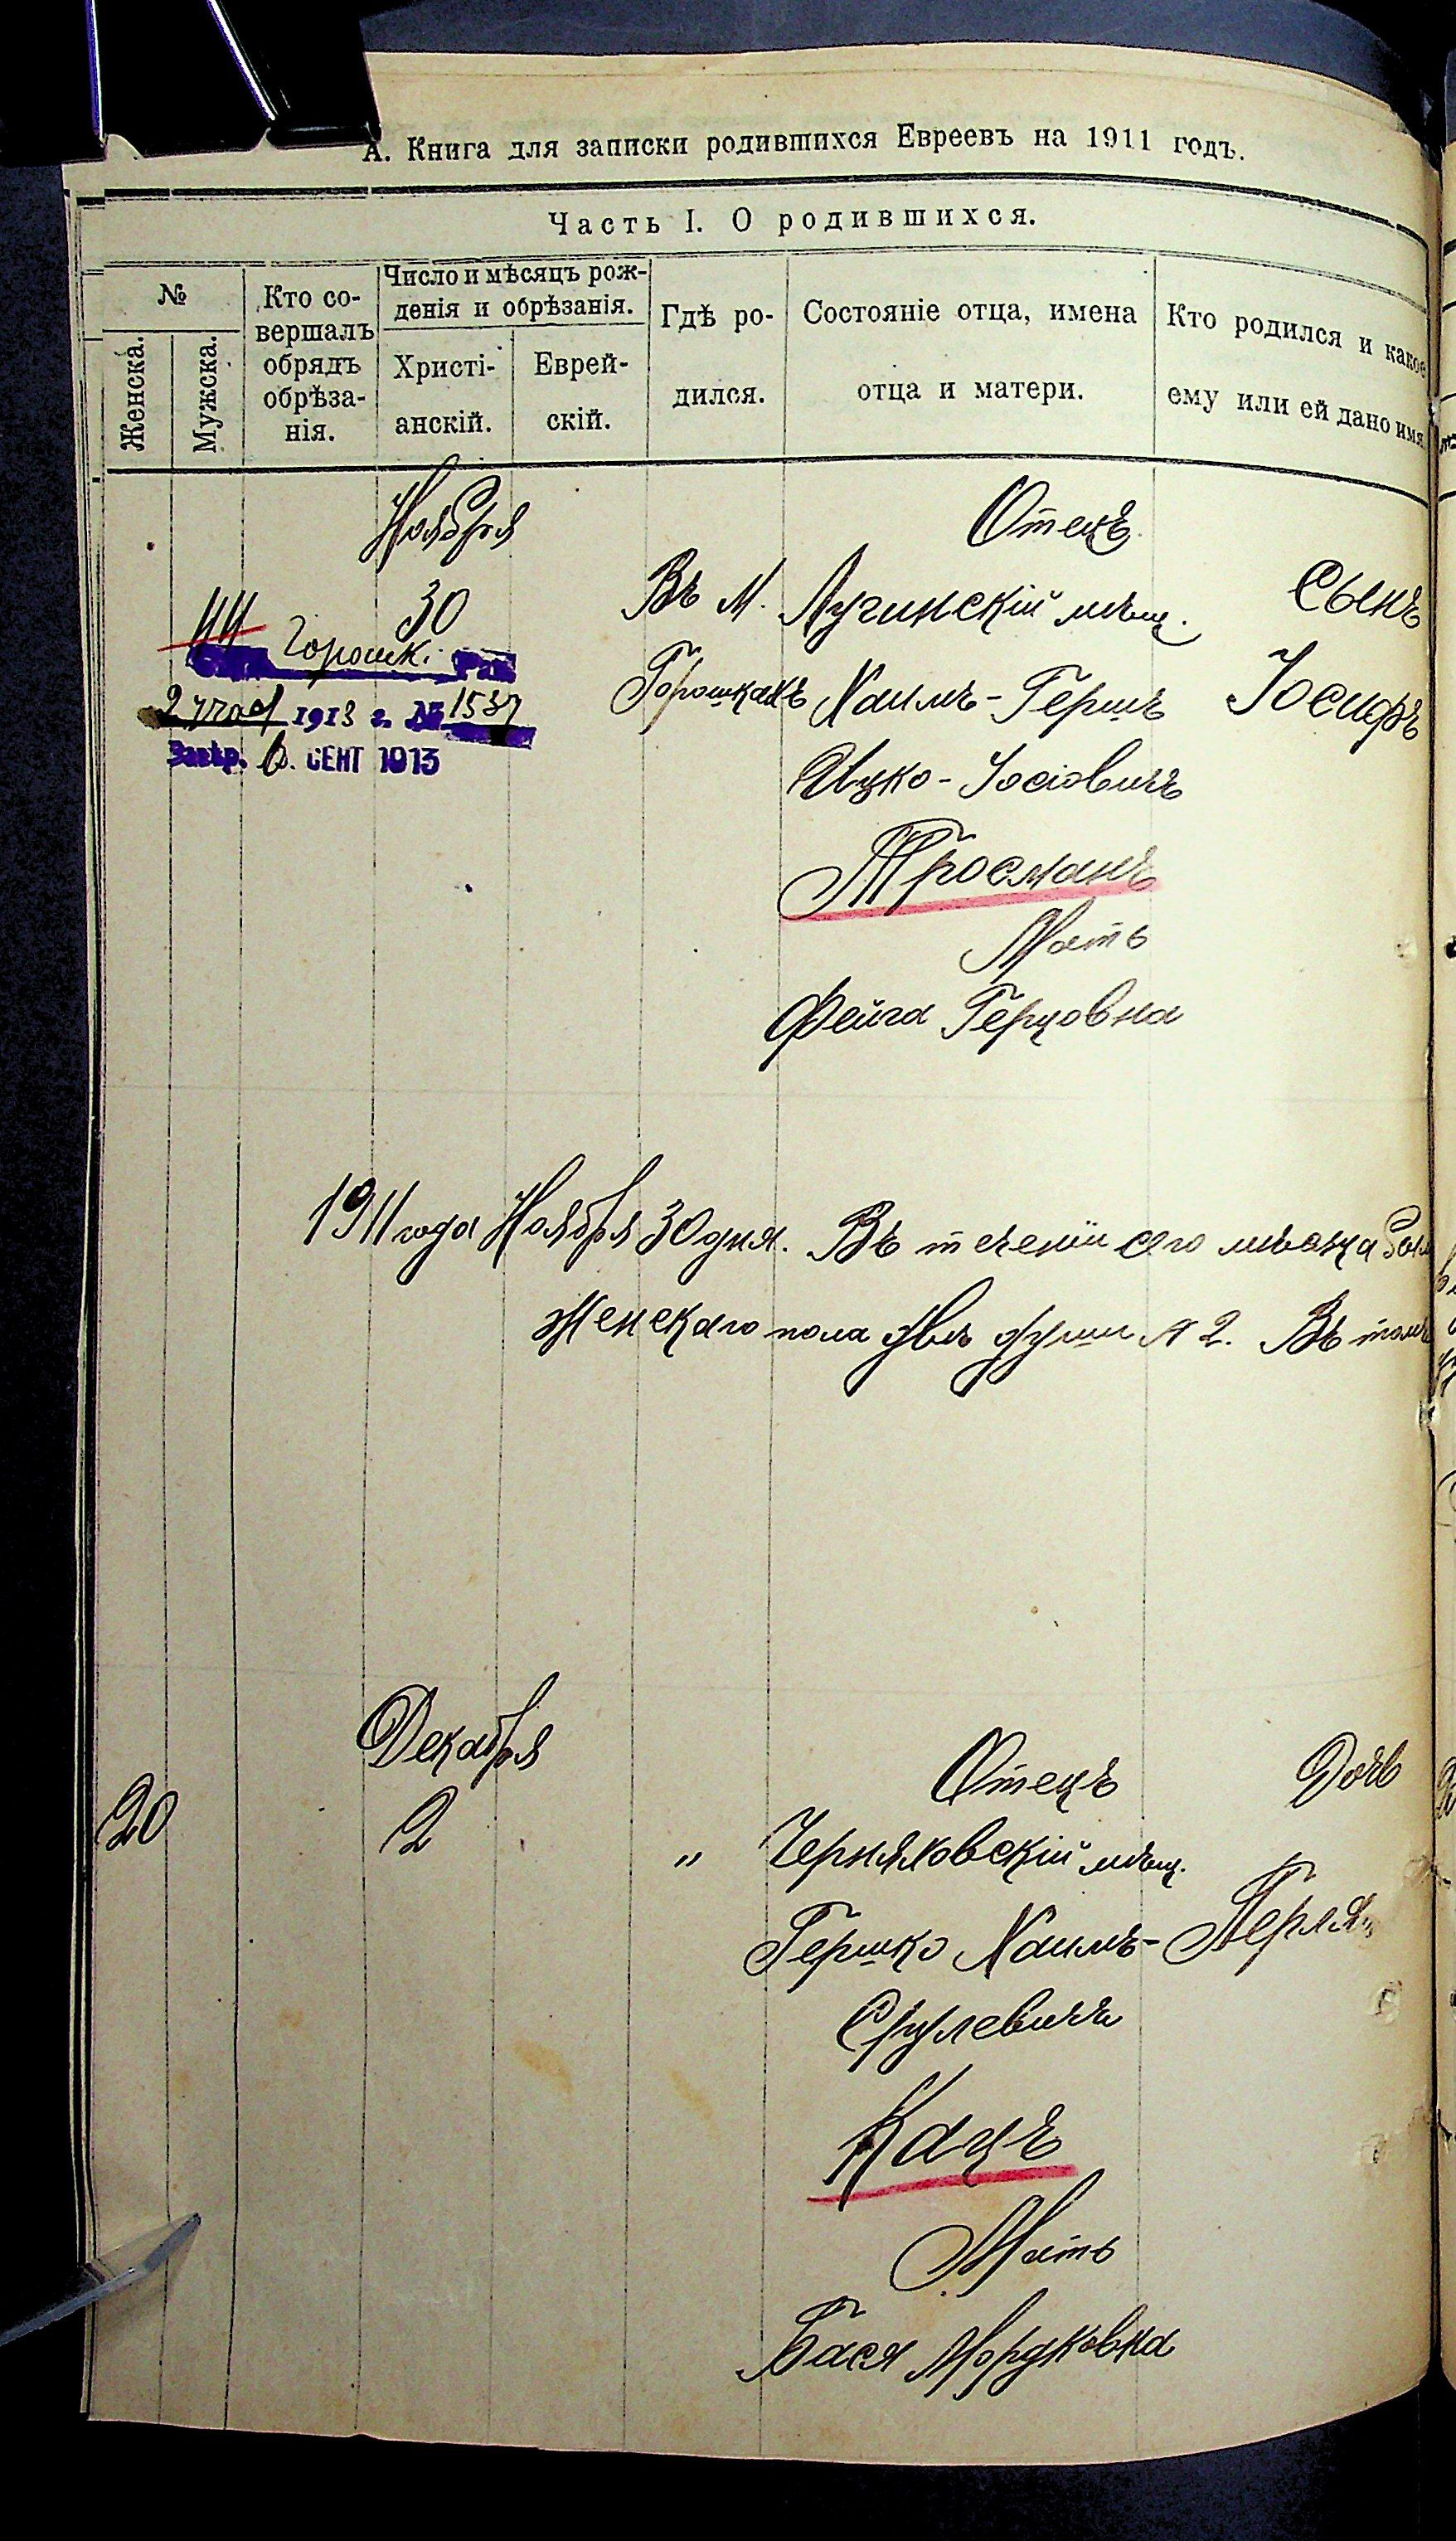 А. Книга для записки родившихся Евреевъ на 1911 годъ.
Часть I. О родившихся.
№
Женска.
Мужска.
Кто со-
вершалъ
обрядъ
обрѣза-
нія.
Число и мѣсяцъ рож-
денія и обрѣзанія.
Христі-
анскій.
Еврей-
скій.
Гдѣ ро-
дился.
Состояніе отца, имена
отца и матери.
Кто родился и какое
ему или ей дано имя
Ноября
44
30
Горошк.
1913 г. № 1537
Завѣр. 6. СЕНТ 1913
Въ М.
Горошкахъ
Отецъ
Лугинскій мѣщ.
Хаимъ-Гершъ
Ицко-Іосіовичъ
Тросманъ
Мать
Фейга Герцовна
Сынъ
Іосифъ
1911 года Ноября 30 дня. Въ теченіи сего мѣсяца
Женскаго пола двѣ души № 2. Въ томъ
Декабря
20
2
"
Отецъ
Черняховскій мѣщ.
Гершко Хаимъ-
Срулевичъ
Кацъ
Мать
Бася Мордковна
Дочь
Перля